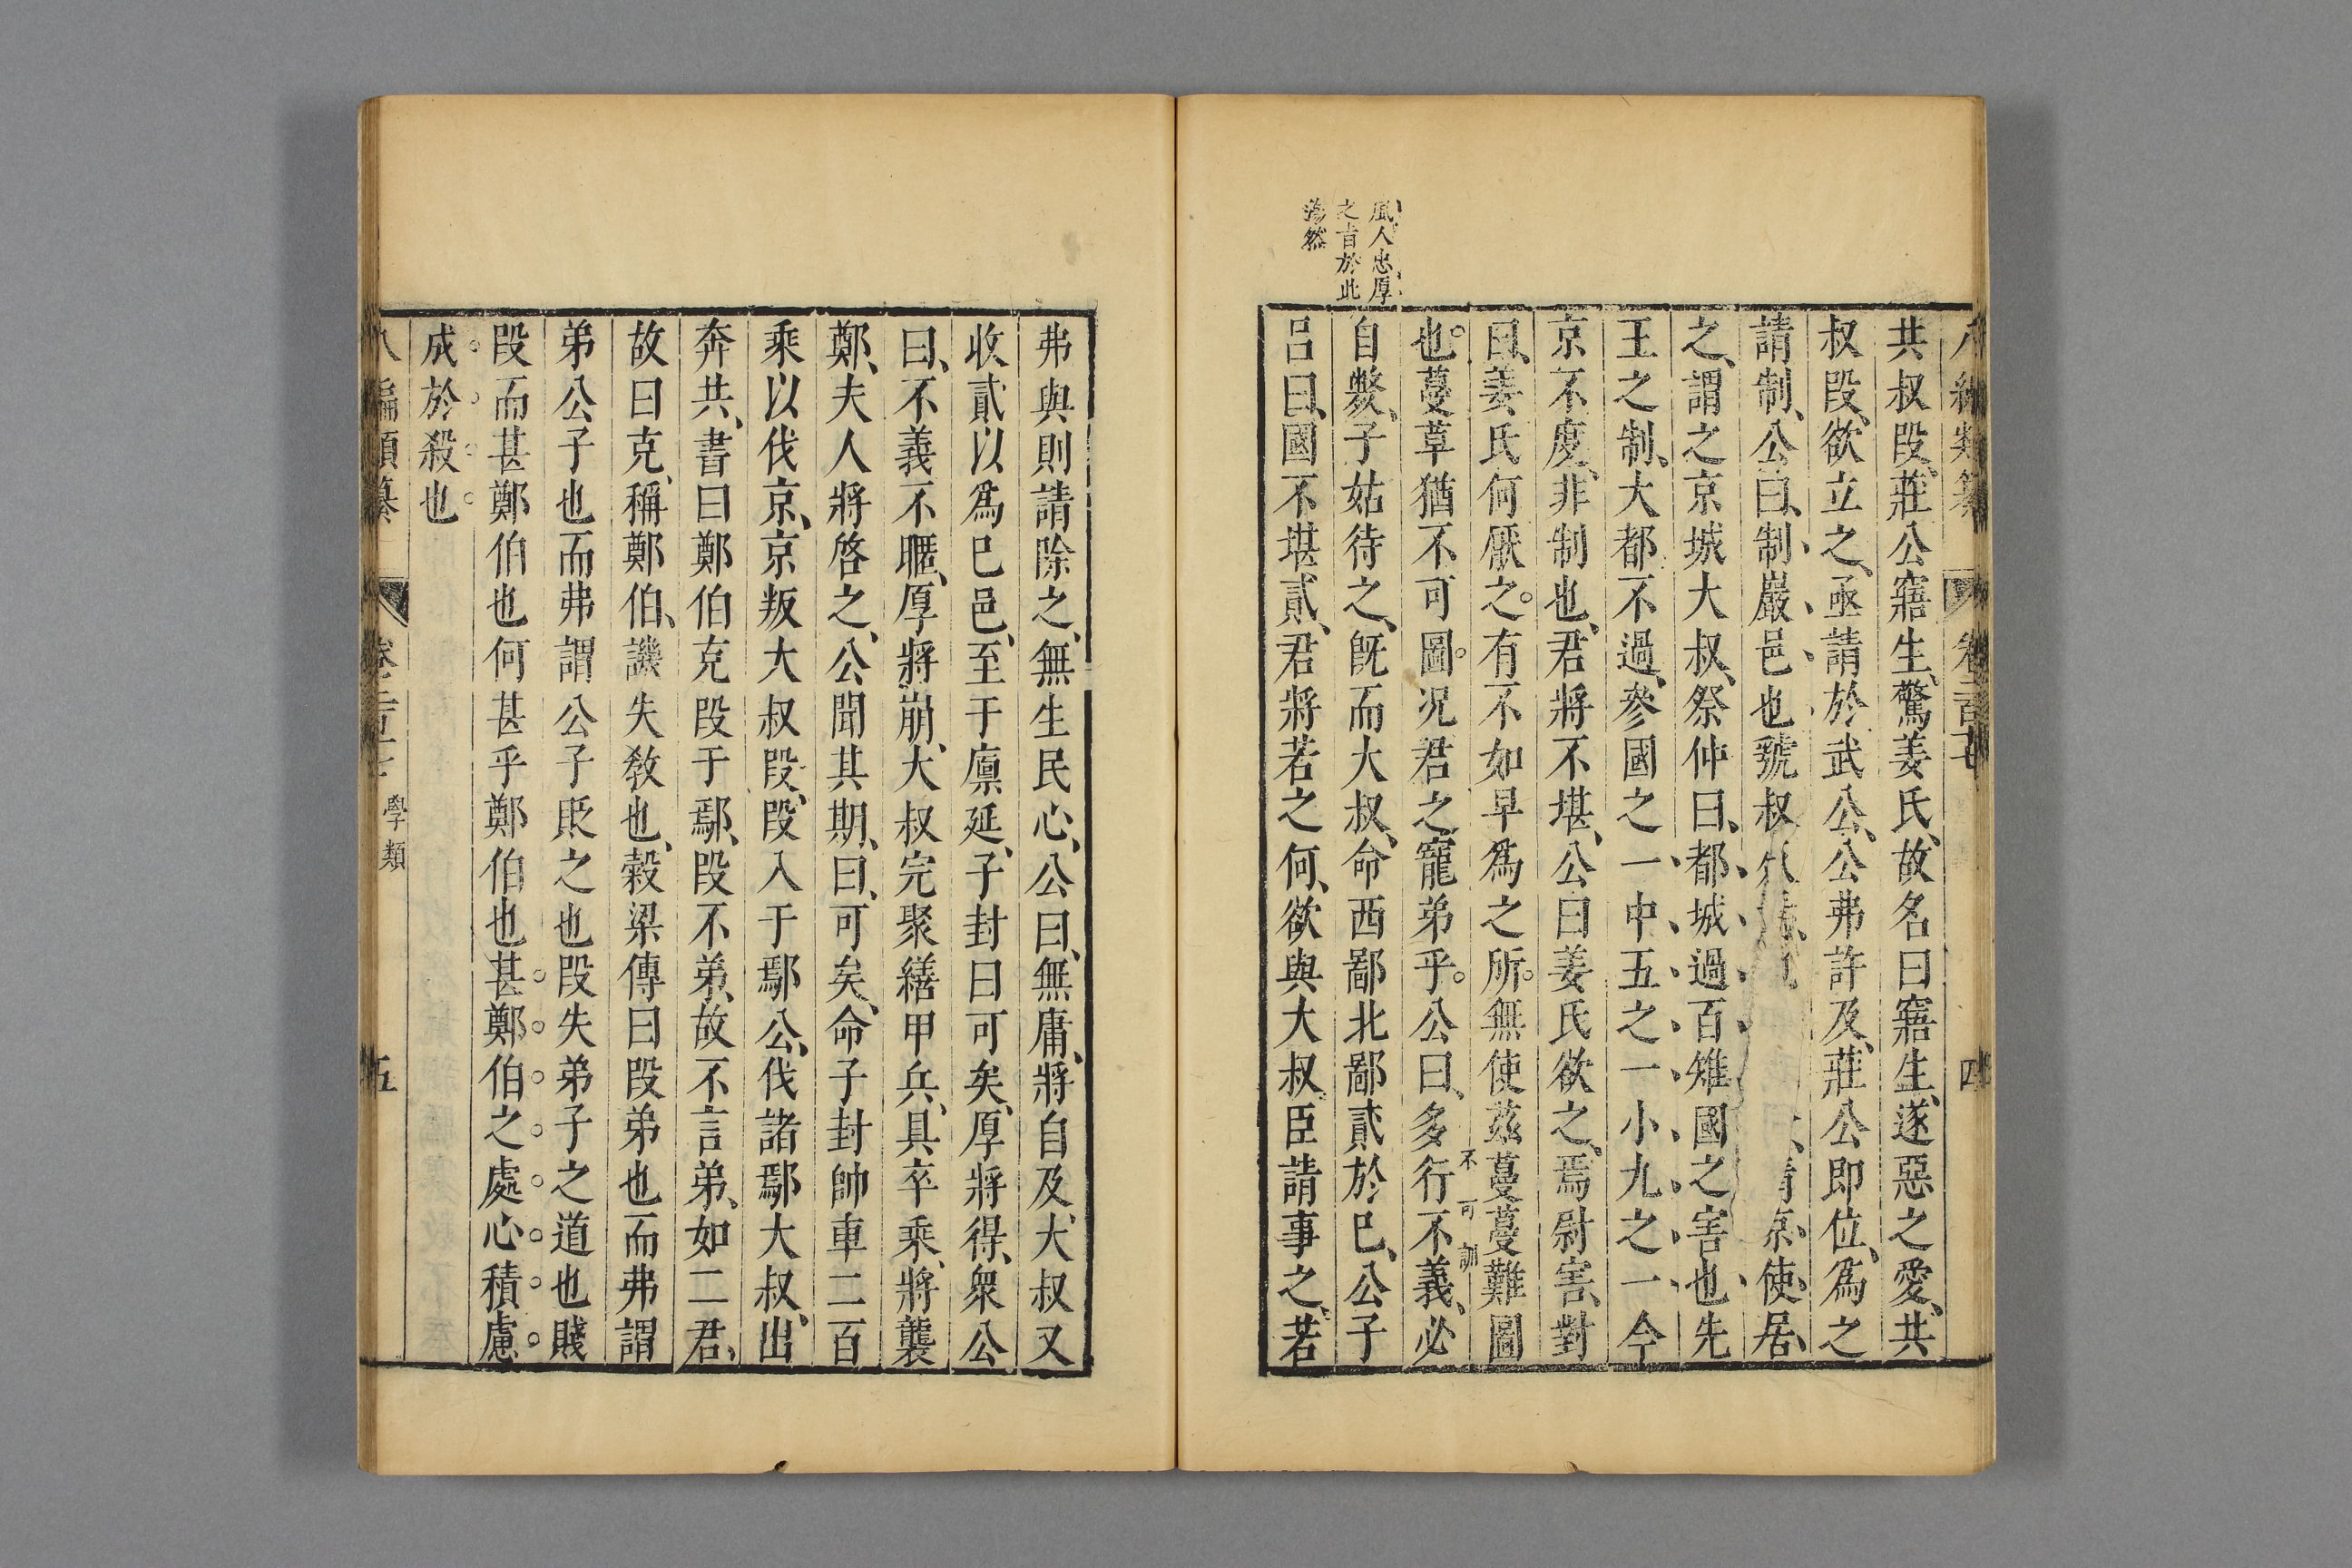 風人忠厚
之旨於此
藹然
共叔段、莊公寤生、驚姜氏、故名曰寤生、遂惡之愛、共
叔段、欲立之、亟請於武公、公弗許及、莊公即位、爲之
請制、公曰、制、巖邑也虢叔 請京、使居、
之、謂之京城大叔、祭仲曰、都城過百雉國之害也先
王之制、大都不過、參國之一中五之一小九之一今
京不度、非制也、君將不堪、公曰姜氏欲之、焉尉害、對
曰、姜氏何厭之。有不如早爲之所。無使茲蔓蔓難圖
也。蔓草猶不可圖。況君之寵弟乎。公曰、多行不義、必
不可訓
自斃、子姑待之、旣而大叔、命西鄙北鄙貳於巳、公子
呂曰、國不堪貳、君將若之何、欲與大叔臣請事之、若
八編類纂 卷之二百七 四
弗與則請除之、無生民心、公曰、無庸、將自及、大叔又
收貳以爲巳邑、至于廩延、子封曰可矣、厚將得、衆公
曰、不義不暱、厚將崩、大叔完聚繕甲兵、具卒乘、將襲
鄭、夫人將啓之、公聞其期、曰、可矣、命子封帥車二百
乘以伐京、京叛大叔段、段入于鄢、公、伐諸鄢大叔、出
奔共、書曰鄭伯克段于鄢、段不弟、故不言弟、如二君、
故曰克、稱鄭伯、譏失教也、穀梁傳曰段弟也而弗謂
弟公子也而弗謂公子貶之也段失弟子之道也賤
段而甚鄭伯也何甚乎鄭伯也甚鄭伯之處心積慮
成於殺也
八編類纂 卷之二百七 學類 五